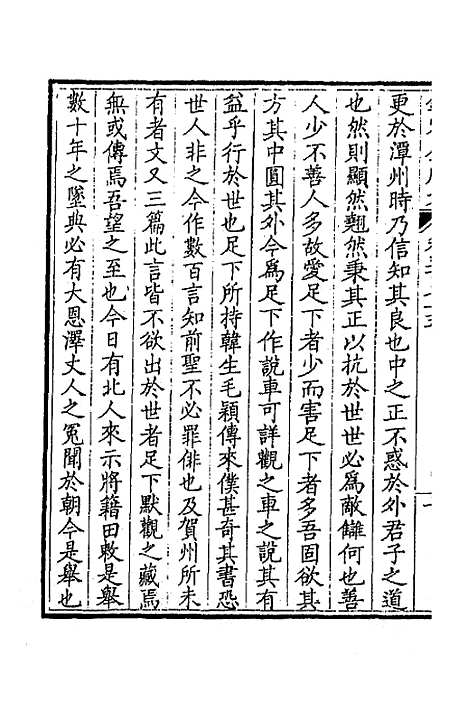 更於潭州時乃信知其良也中之正不惑於外君子之道
也然則顯然翹然秉其正以抗於世世必爲敵讎何也善
人少不善人多故愛足下者少而害足下者多吾固欲其
方其中圓其外今爲足下作說車可詳觀之車之說其有
益乎行於世也足下所持韓生毛穎傳來僕甚奇其書恐
世人非之今作數百言知前聖不必罪俳也及賀州所未
有者文又三篇此言皆不欲出於世者足下默觀之藏焉
無或傳焉吾望之至也今日有北人來示將籍田敕是舉
數十年之墜典必有大恩澤丈人之冤聞於朝今是舉也